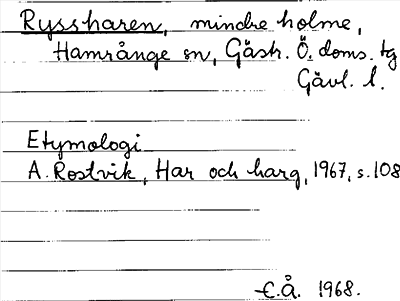 Ryssharen, mindre holme,
Hamrånge sn, Gästr. Ö. doms. tg
Gävl. l.
Etymologi
A. Rostvik, Har och harg, 1967, s. 108
E.Å. 1968.